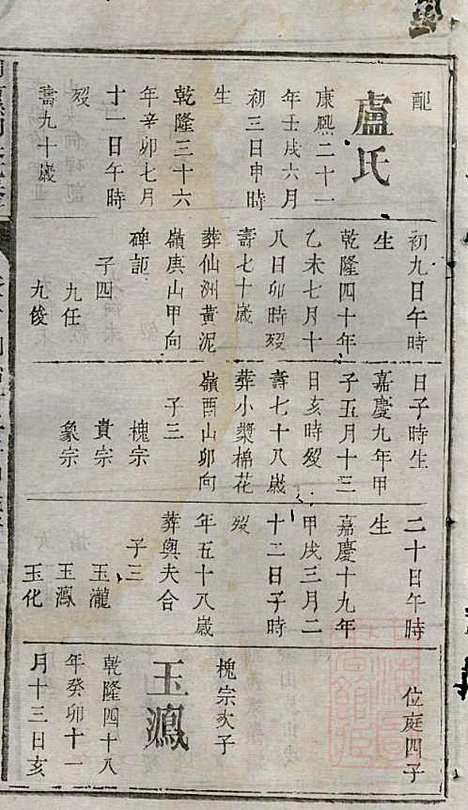 配
盧氏
康熙二十一
年壬戌六月
初三日申時
生
乾隆三十六
年辛卯七月
十一日午時
歿
壽九十歲
初九日午時
生
乾隆四十年
乙未七月十
八日卯時歿
壽七十歲
葬仙洲黃泥
嶺庚山甲向
碑記
子四
九任
九俊
日子時生
嘉慶九年甲
子五月十三
日亥時歿
壽七十八歲
葬小漿棉花
嶺酉山卯向
子三
槐宗
貴宗
象宗
二十日午時
生
嘉慶十九年
甲戌三月二
十二日子時
歿
年五十八歲
葬與夫合
子三
玉瀧
玉鳳
玉化
位庭四子
槐宗次子
玉鳳
乾隆四十八
年癸卯十一
月十三日亥